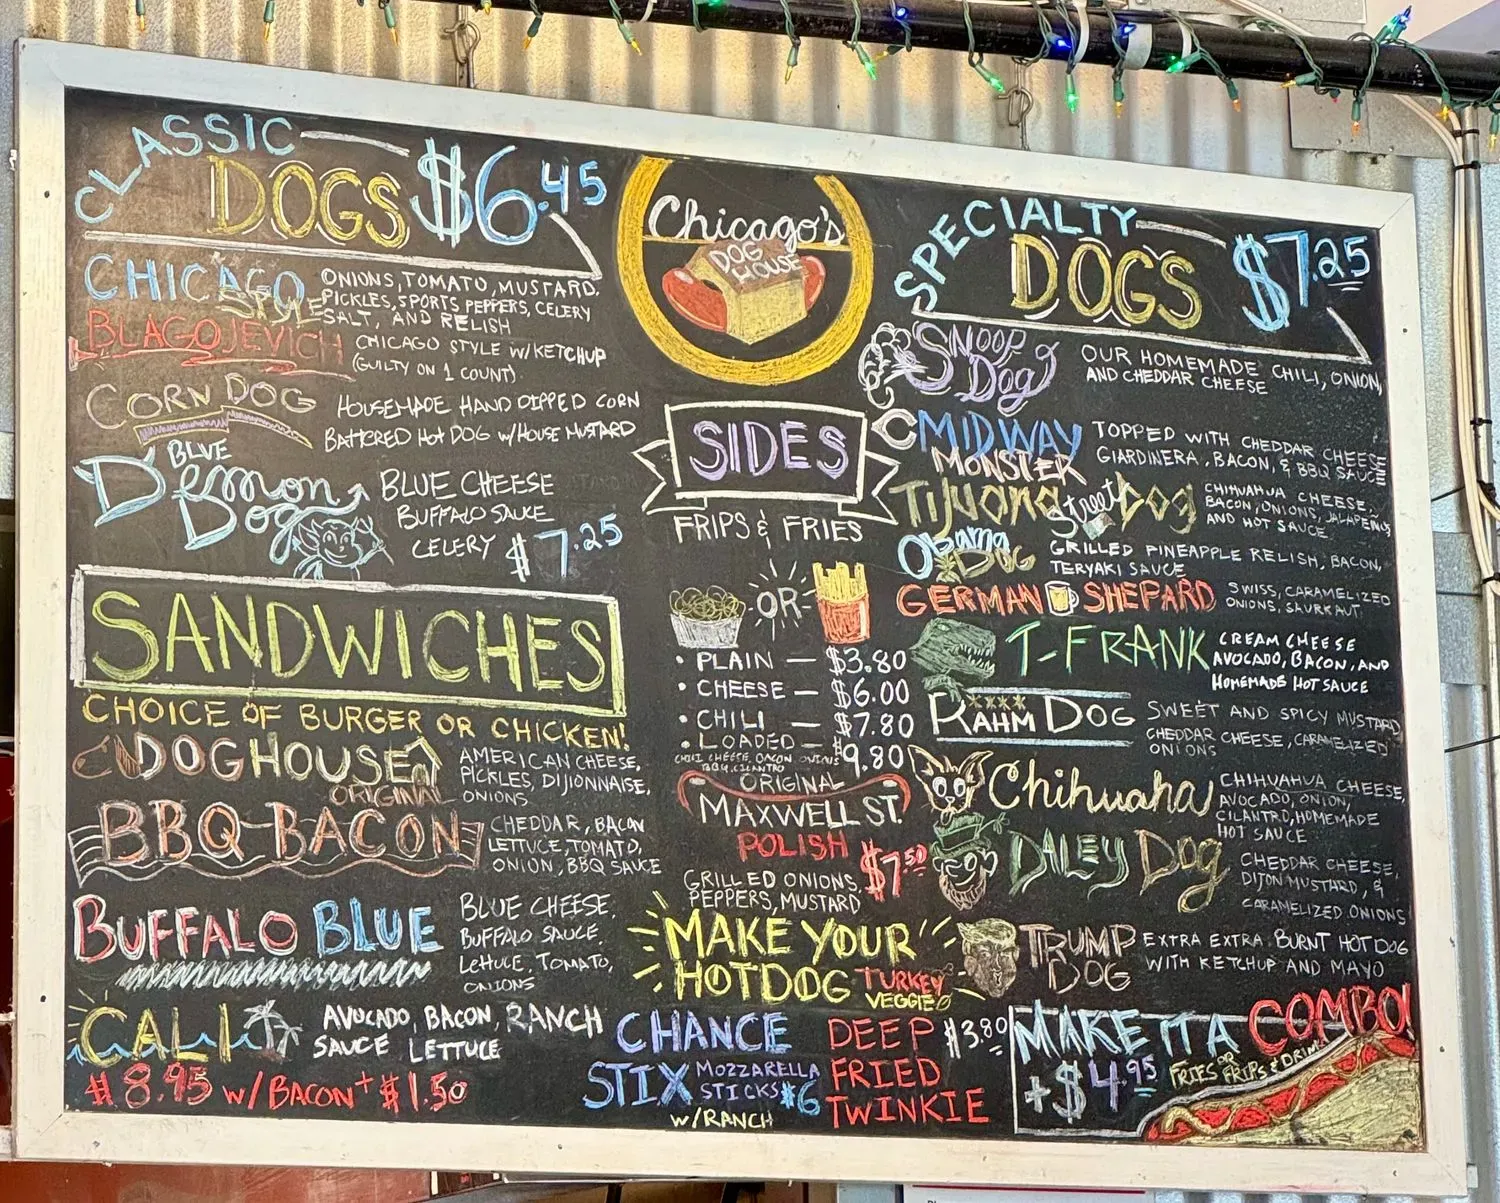 CLASSIC
DOGS $6.45
CHICAGO STYLE
ONIONS, TOMATO, MUSTARD,
PICKLES, SPORTS PEPPERS, CELERY
SALT, AND RELISH
BLAGOJEVICH
CHICAGO STYLE W/KETCHUP
(GUILTY ON 1 COUNT).
CORN DOG
HOUSEMADE HAND DIPPED CORN
BATTERED HOT DOG W/HOUSE MUSTARD
BLUE
DEMON
DOG
BLUE CHEESE
BUFFALO SAUCE
CELERY $7.25
SANDWICHES
CHOICE OF BURGER OR CHICKEN!
DOGHOUSE
ORIGINAL
AMERICAN CHEESE,
PICKLES, DIJIONNAISE,
ONIONS
BBQ-BACON
CHEDDAR, BACON
LETTUCE, TOMATO,
ONION, BBQ SAUCE
BUFFALO BLUE
BLUE CHEESE,
BUFFALO SAUCE,
LETTUCE, TOMATO,
ONIONS
CALI
AVOCADO, BACON, RANCH
SAUCE LETTUCE
$8.95 W/BACON + $1.50
Chicago's
DOG
HOUSE
SIDES
FRIPS & FRIES
OR
• PLAIN — $3.80
• CHEESE — $6.00
• CHILI — $7.80
• LOADED — $9.80
CHILI, CHEESE, BACON, ONIONS
BBQ, CILANTRO
ORIGINAL
MAXWELL ST.
POLISH $7.50
GRILLED ONIONS,
PEPPERS, MUSTARD
MAKE YOUR
HOTDOG TURKEY
VEGGIE
CHANCE
STIX MOZZARELLA
STICKS $6
W/RANCH
DEEP $3.80
FRIED
TWINKIE
SPECIALTY
DOGS $7.25
SNOOP
Dog
OUR HOMEMADE CHILI, ONION,
AND CHEDDAR CHEESE
MIDWAY
MONSTER
TOPPED WITH CHEDDAR CHEESE
GIARDINERA, BACON, & BBQ SAUCE
TIJUANA Street DOG
CHIHUAHUA CHEESE,
BACON, ONIONS, JALAPENOS
AND HOT SAUCE
Obama
DOG
GRILLED PINEAPPLE RELISH, BACON,
TERYAKI SAUCE
GERMAN SHEPARD
SWISS, CARAMELIZED
ONIONS, SAURKAUT,
T-FRANK
CREAM CHEESE
AVOCADO, BACON, AND
HOMEMADE HOT SAUCE
RAHM DOG
SWEET AND SPICY MUSTARD,
CHEDDAR CHEESE, CARAMELIZED
ONIONS
Chihuaha
CHIHUAHUA CHEESE,
AVOCADO, ONION,
CILANTRO, HOMEMADE
HOT SAUCE
DALEY DOG
CHEDDAR CHEESE,
DIJON MUSTARD, &
CARAMELIZED ONIONS
TRUMP
DOG
EXTRA EXTRA BURNT HOT DOG
WITH KETCHUP AND MAYO
MAKE IT A COMBO!
+$4.95 FRIES OR FRIPS & DRINK